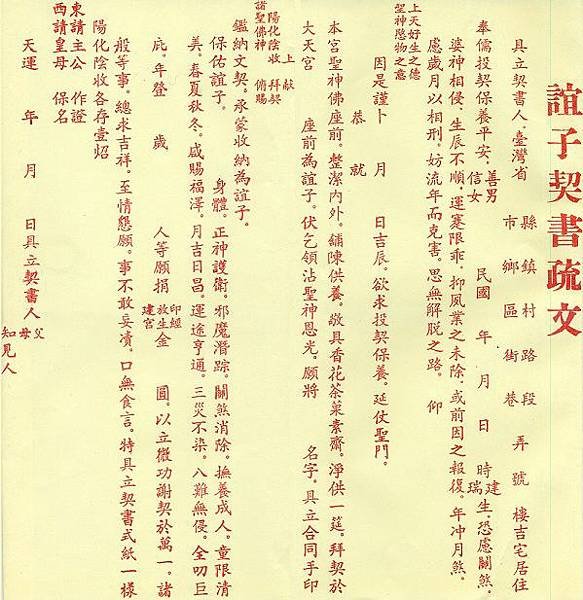 誼子契書疏文
具立契書人、臺灣省 縣市 鎮鄉 村區 路街 段巷 弄 號 樓吉宅居住
奉儒投契保養平安、善男信女 民國 年 月 日 時建瑞生、恐慮關煞、
婆神相侵、生辰不順、運蹇限乖、抑風業之未除、或前因之報復、年冲月煞、
慮歲月以相刑、妨流年而克害、思無解脫之路、仰
上天好生之德
聖神愍物之意
因是謹卜 月 日吉辰、欲求投契保養、延仗聖門、
恭就
本宮聖神佛座前、整潔內外、鋪陳供養、敬具香花茶菓素齋、淨供一筵、拜契於
大天宮 座前為誼子、伏乞領沾聖神恩光、願將 名字、具立合同手印
上献
陽化陰收 拜契
諸聖佛神 俯賜
鑑納文契、承蒙收納為誼子、
保佑誼子、 身體、正神護衛、邪魔潛踪、關煞消除、撫養成人、童限清
美、春夏秋冬、咸賜福澤、月吉日昌、運途亨通、三災不染、八難無侵、全叨巨
庇、年登 歲 人等願捐 印經放生建宮 金 圓、以立微功謝契於萬一、諸
般等事、總求吉祥、至情懇願、事不敢妄瀆、口無食言、特具立契書式紙一樣
陽化陰收各存壹炤
東請主公 作證
西請皇母 保名
天運 年 月 日具立契書人
父母
知見人